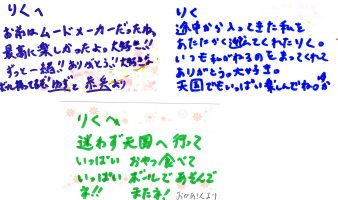 りくへ
お弟はムードメーカーだったね。
最高に楽しかったよ。大好き!!
ずっと一緒!!ありがとう!!大好き
ゆずと 赤兵より
りく
途中から入ってきた私を
あたたかく迎えてくれたりく。
いつも私がねるのをまっててくれて
ありがとう。大好き。
天国でもいっぱい楽しんでね。
りくへ
迷わず天国へ行って
いっぱい おやつ食べて
いっぱい ボールであそんで
ネ!! またネ!
おかあさんより